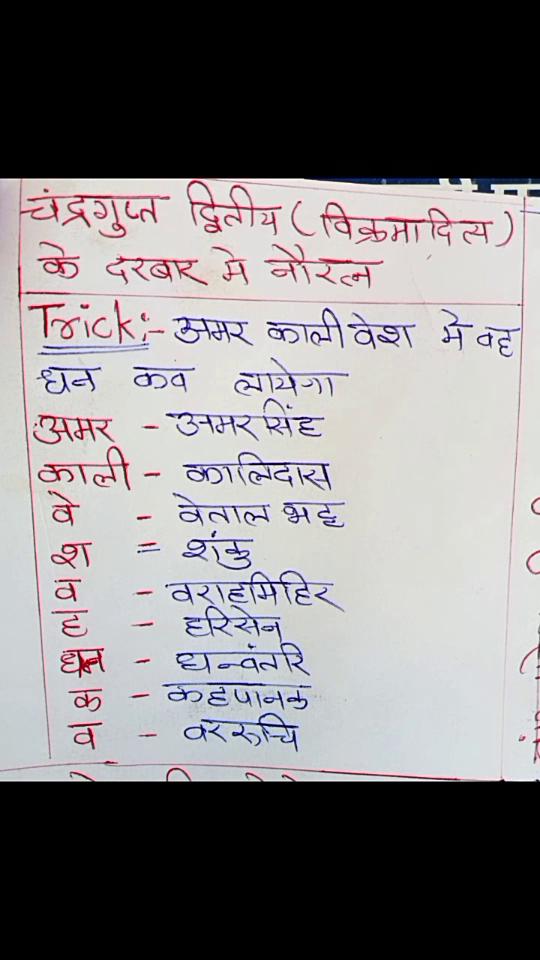 चंद्रगुप्त द्वितीय (विक्रमादित्य)
के दरबार मे नौरत्न
Trick:- अमर काली वेश मे वह
धन कब लायेगा
अमर - अमरसिंह
काली - कालिदास
वे - वेताल भट्ट
श = शंकु
व - वराहमिहिर
ह - हरिसेन
धन - धन्वंतरि
क - कहपानक
व - वररूचि